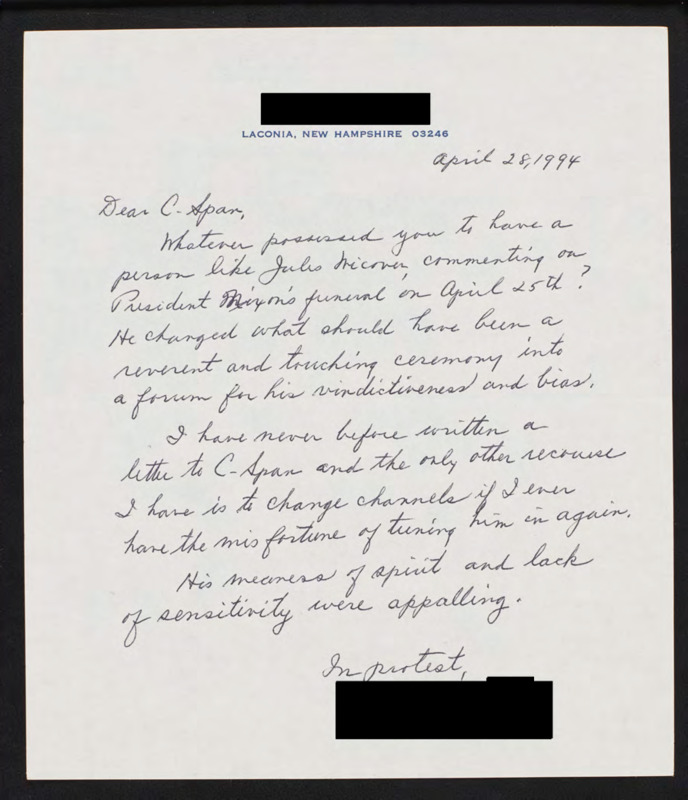 LACONIA, NEW HAMPSHIRE 03246
April 28, 1994
Dear C-Span,
Whatever possessed you to have a
person like Jules Wicover, commenting on
President Nixon's funeral on April 25th?
He changed what should have been a
reverent and touching ceremony into
a forum for his vindictiveness and bias.
I have never before written a
letter to C-Span and the only other recourse
I have is to change channels if I ever
have the misfortune of tuning him in again.
His meaness of spirit and lack
of sensitivity were appalling.
In protest,